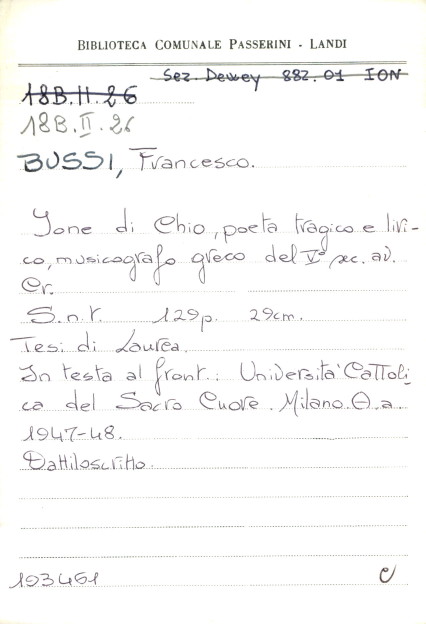 BIBLIOTECA COMUNALE PASSERINI - LANDI
Sez. Dewey 882.01 ION
18B.II.26
18B.II.26
BUSSI, Francesco.
Ione di Chio, poeta tragico e liri-
co, musicografo greco del V° sec. av.
Cr.
S.n.t. 129p. 29cm.
Tesi di Laurea.
In testa al front.: Università Cattoli-
ca del Sacro Cuore. Milano. A.a.
1947-48.
Dattiloscritto.
193451 C